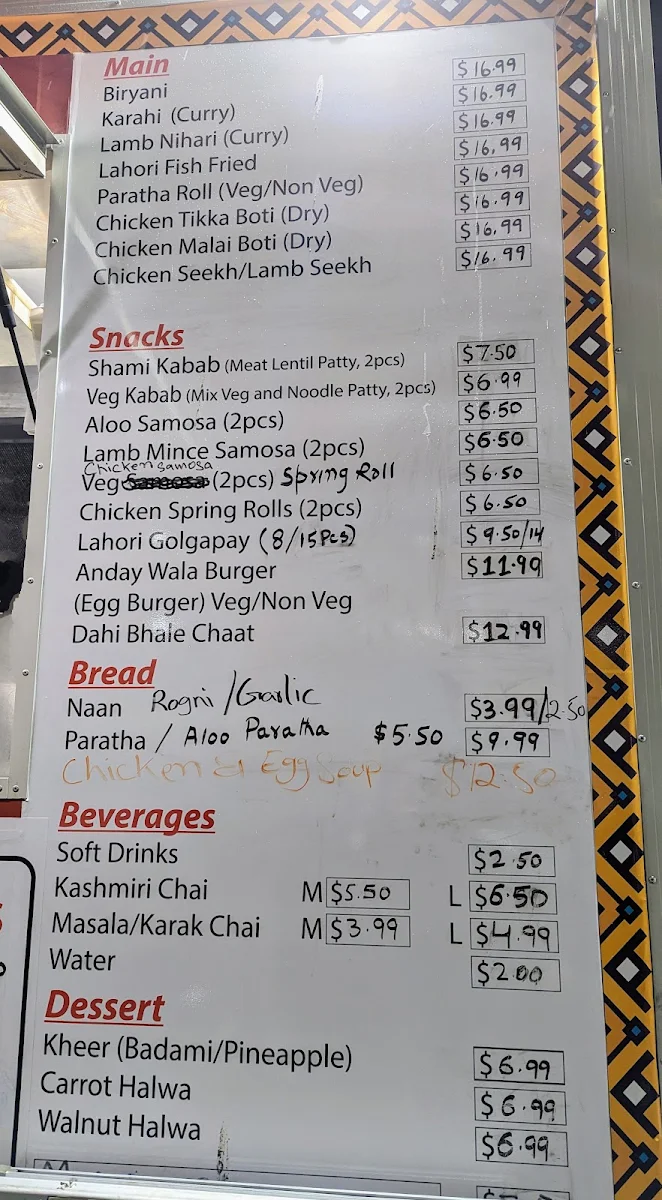 Main
Biryani $16.99
Karahi (Curry) $16.99
Lamb Nihari (Curry) $16.99
Lahori Fish Fried $16.99
Paratha Roll (Veg/Non Veg) $16.99
Chicken Tikka Boti (Dry) $16.99
Chicken Malai Boti (Dry) $16.99
Chicken Seekh/Lamb Seekh $16.99
Snacks
Shami Kabab (Meat Lentil Patty, 2pcs) $7.50
Veg Kabab (Mix Veg and Noodle Patty, 2pcs) $6.99
Aloo Samosa (2pcs) $6.50
Lamb Mince Samosa (2pcs) $6.50
Chicken Samosa
Veg (2pcs) Spring Roll $6.50
Chicken Spring Rolls (2pcs) $6.50
Lahori Golgapay (8/15Pcs) $9.50/14
Anday Wala Burger $11.99
(Egg Burger) Veg/Non Veg
Dahi Bhale Chaat $12.99
Bread
Naan Rogni/Garlic $3.99/2.50
Paratha / Aloo Paratha $5.50 $9.99
Chicken & Egg Soup $12.50
Beverages
Soft Drinks $2.50
Kashmiri Chai M $5.50 L $6.50
Masala/Karak Chai M $3.99 L $4.99
Water $2.00
Dessert
Kheer (Badami/Pineapple) $6.99
Carrot Halwa $6.99
Walnut Halwa $6.99